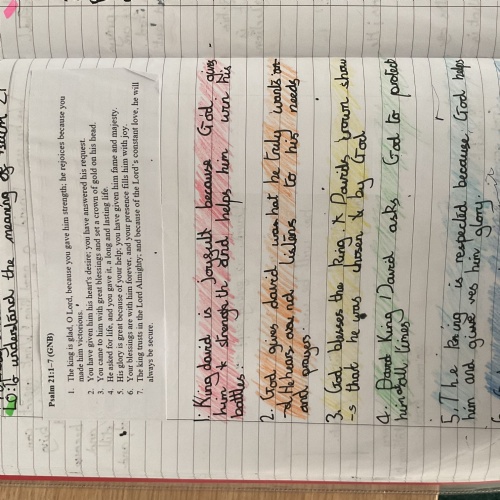 to understand the meaning of Psalm 21
Psalm 21:1-7 (GNB)
1. The king is glad, O Lord, because you gave him strength; he rejoices because you
made him victorious.
2. You have given him his heart's desire; you have answered his request.
3. You came to him with great blessings and set a crown of gold on his head.
4. He asked for life, and you gave it, a long and lasting life.
5. His glory is great because of your help; you have given him fame and majesty.
6. Your blessings are with him forever, and your presence fills him with joy.
7. The king trusts in the Lord Almighty; and because of the Lord's constant love, he will
always be secure.
1. King david is joyfull because God give
him strength and helps him win his
battles.
2. God gives david what he truly wants
He hears and listens to his needs
and prayer.
3. God blesses the king. Davids crown show
-s that he was chosen by God
4. David King David asks God to protect
him
5. The King is respected because, God helps
him and give ves him glory